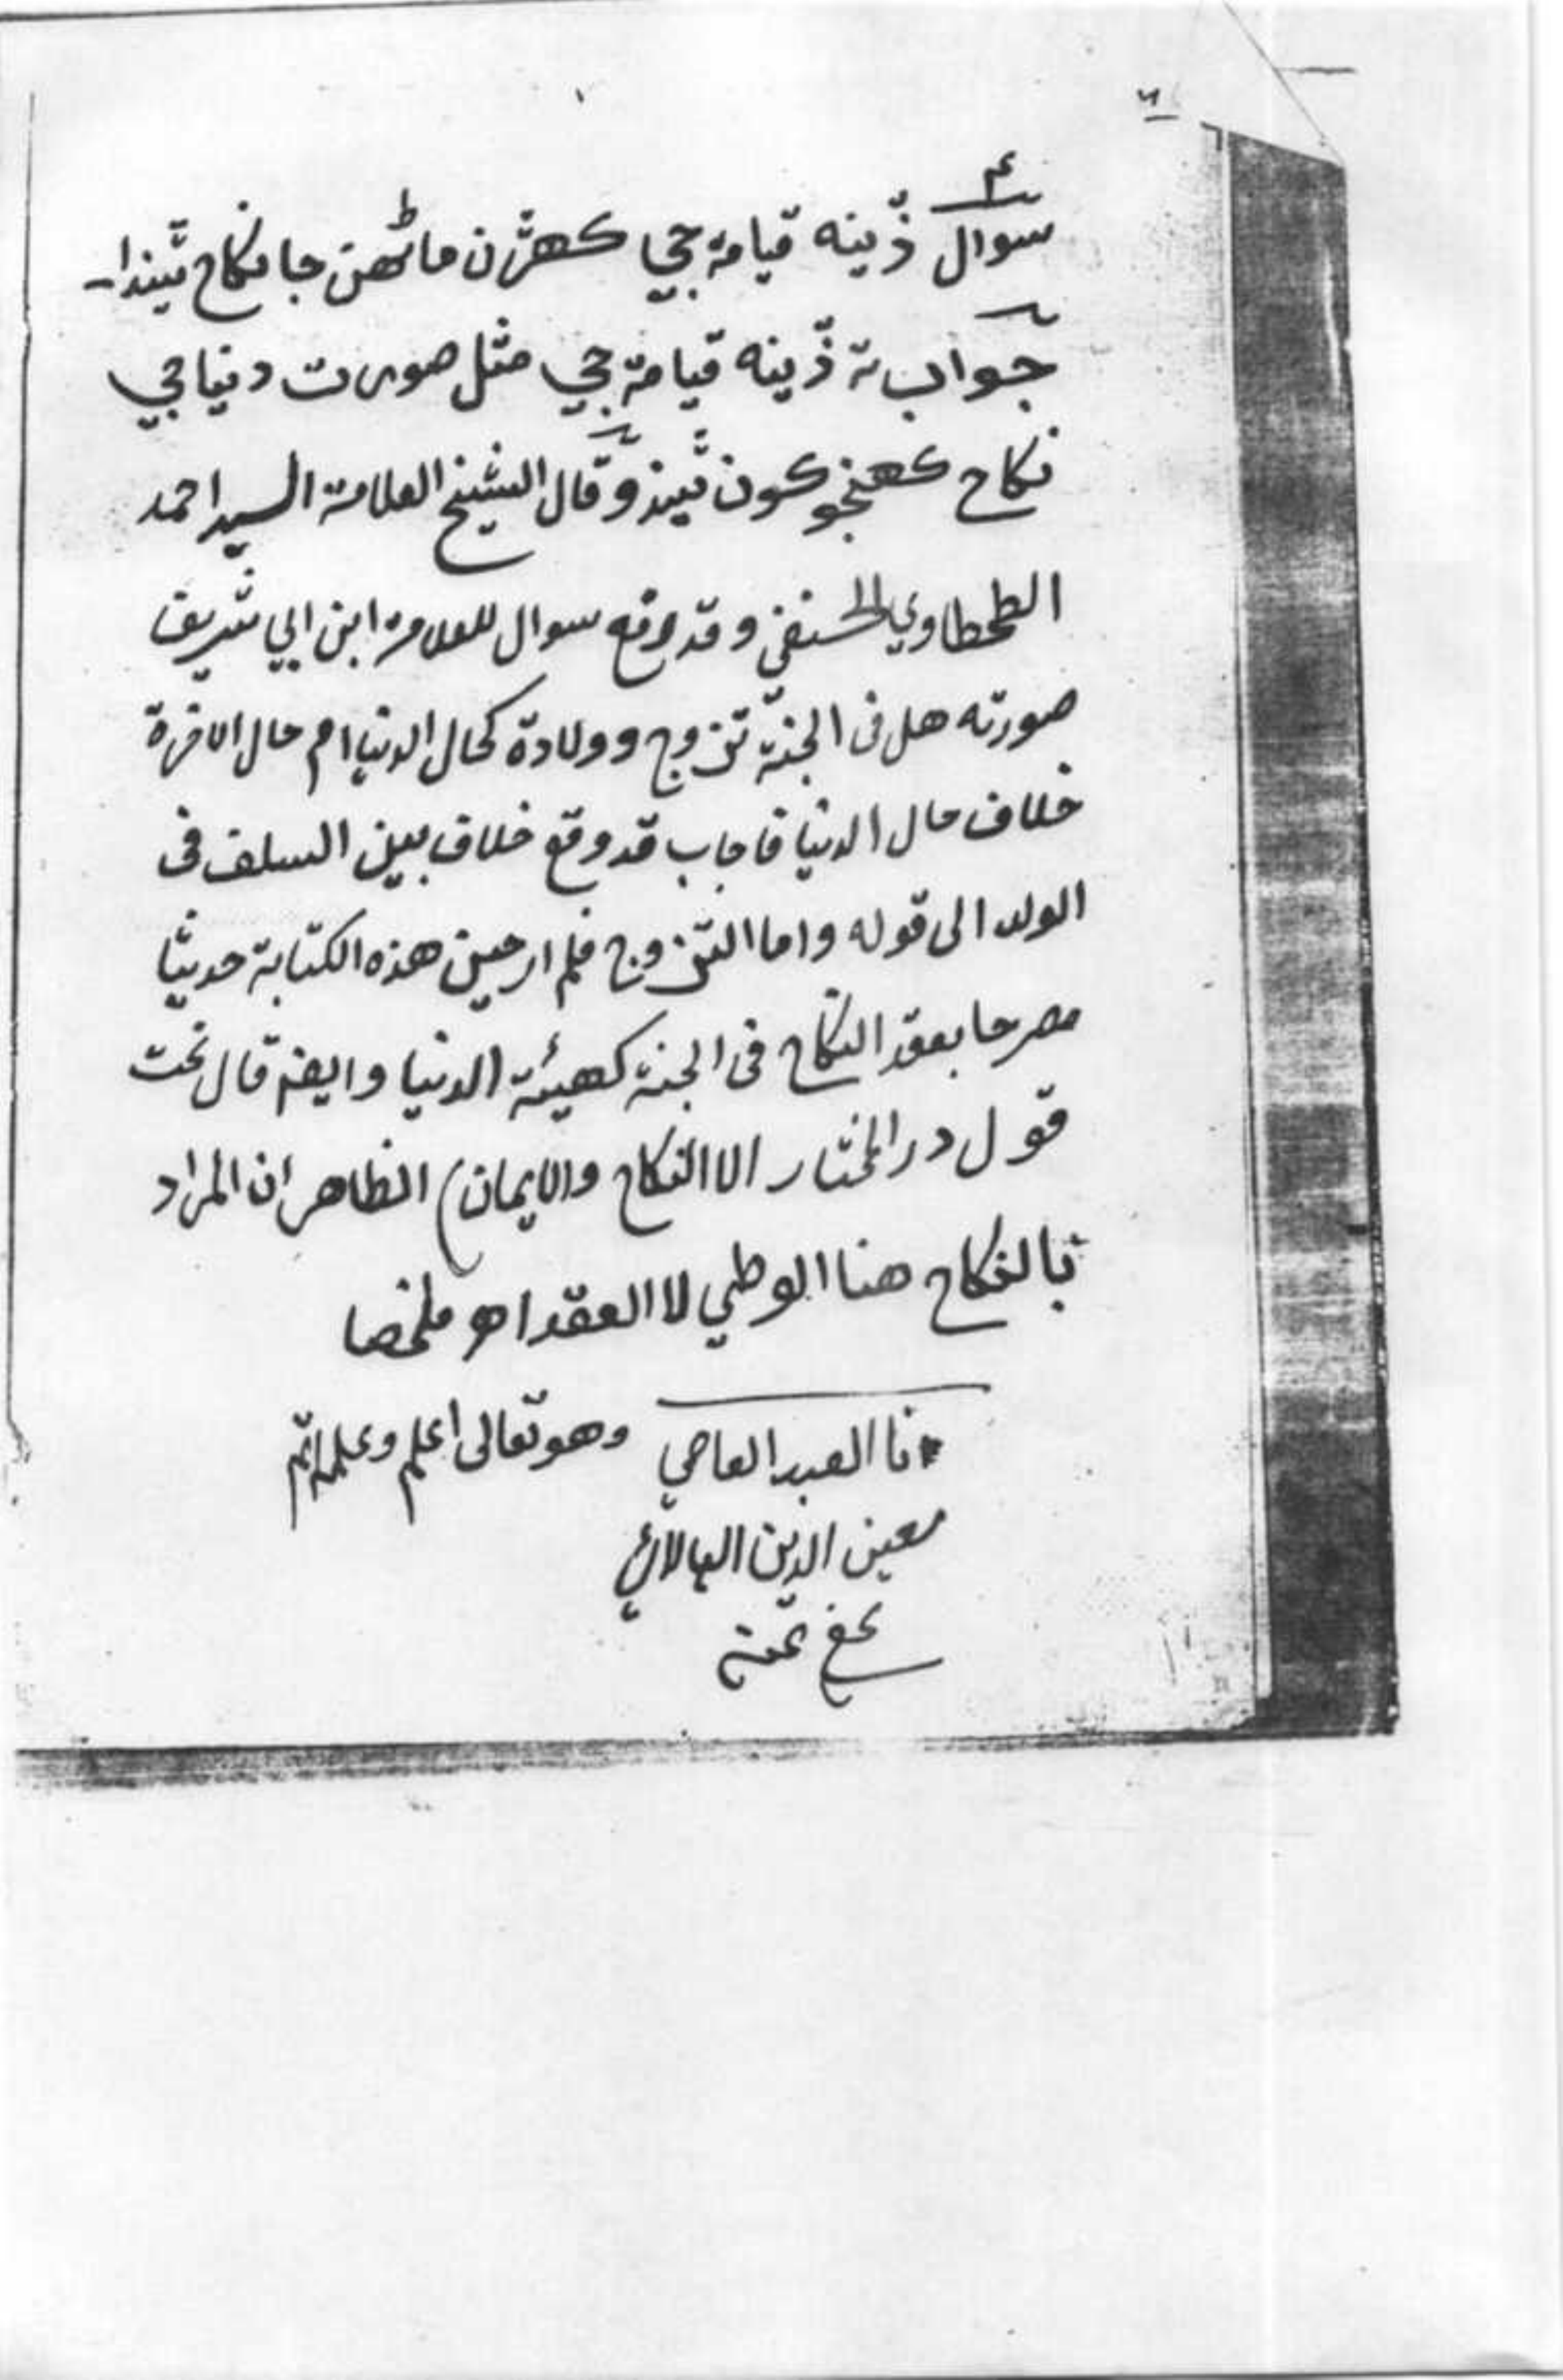 ٦
٤
سوال ڏينه قيامة جي ڪهڙن ماڻهن جا نكاح ٿيندا۔
جواب ته ڏينه قيامة جي مثل صورت دنيا جي
نكاح ڪهنجو ڪون ٿيندو قال الشيخ العلامة السيد احمد
الطحطاوي الحنفي وقد رفع سوال للعلامة ابن ابي شريف
صورته هل فى الجنة تزوج وولادة كحال الدنيا ام حال الاخرة
خلاف حال الدنيا فاجاب قد وقع خلاف بين السلف فى
الولد الى قوله واما التزوج فلم ار حين هذه الكتابة حديثا
مصرحا بعقد النكاح فى الجنة كهيئة الدنيا وايضا قال تحت
قول در المختار الا النكاح والايمان) الظاهر ان المراد
بالنكاح هنا الوطي لا العقد اھ ملخصا
وهو تعالى اعلم وعلمه اتم
انا العبد العاصي
معين الدين الهالائي
عفي عنه